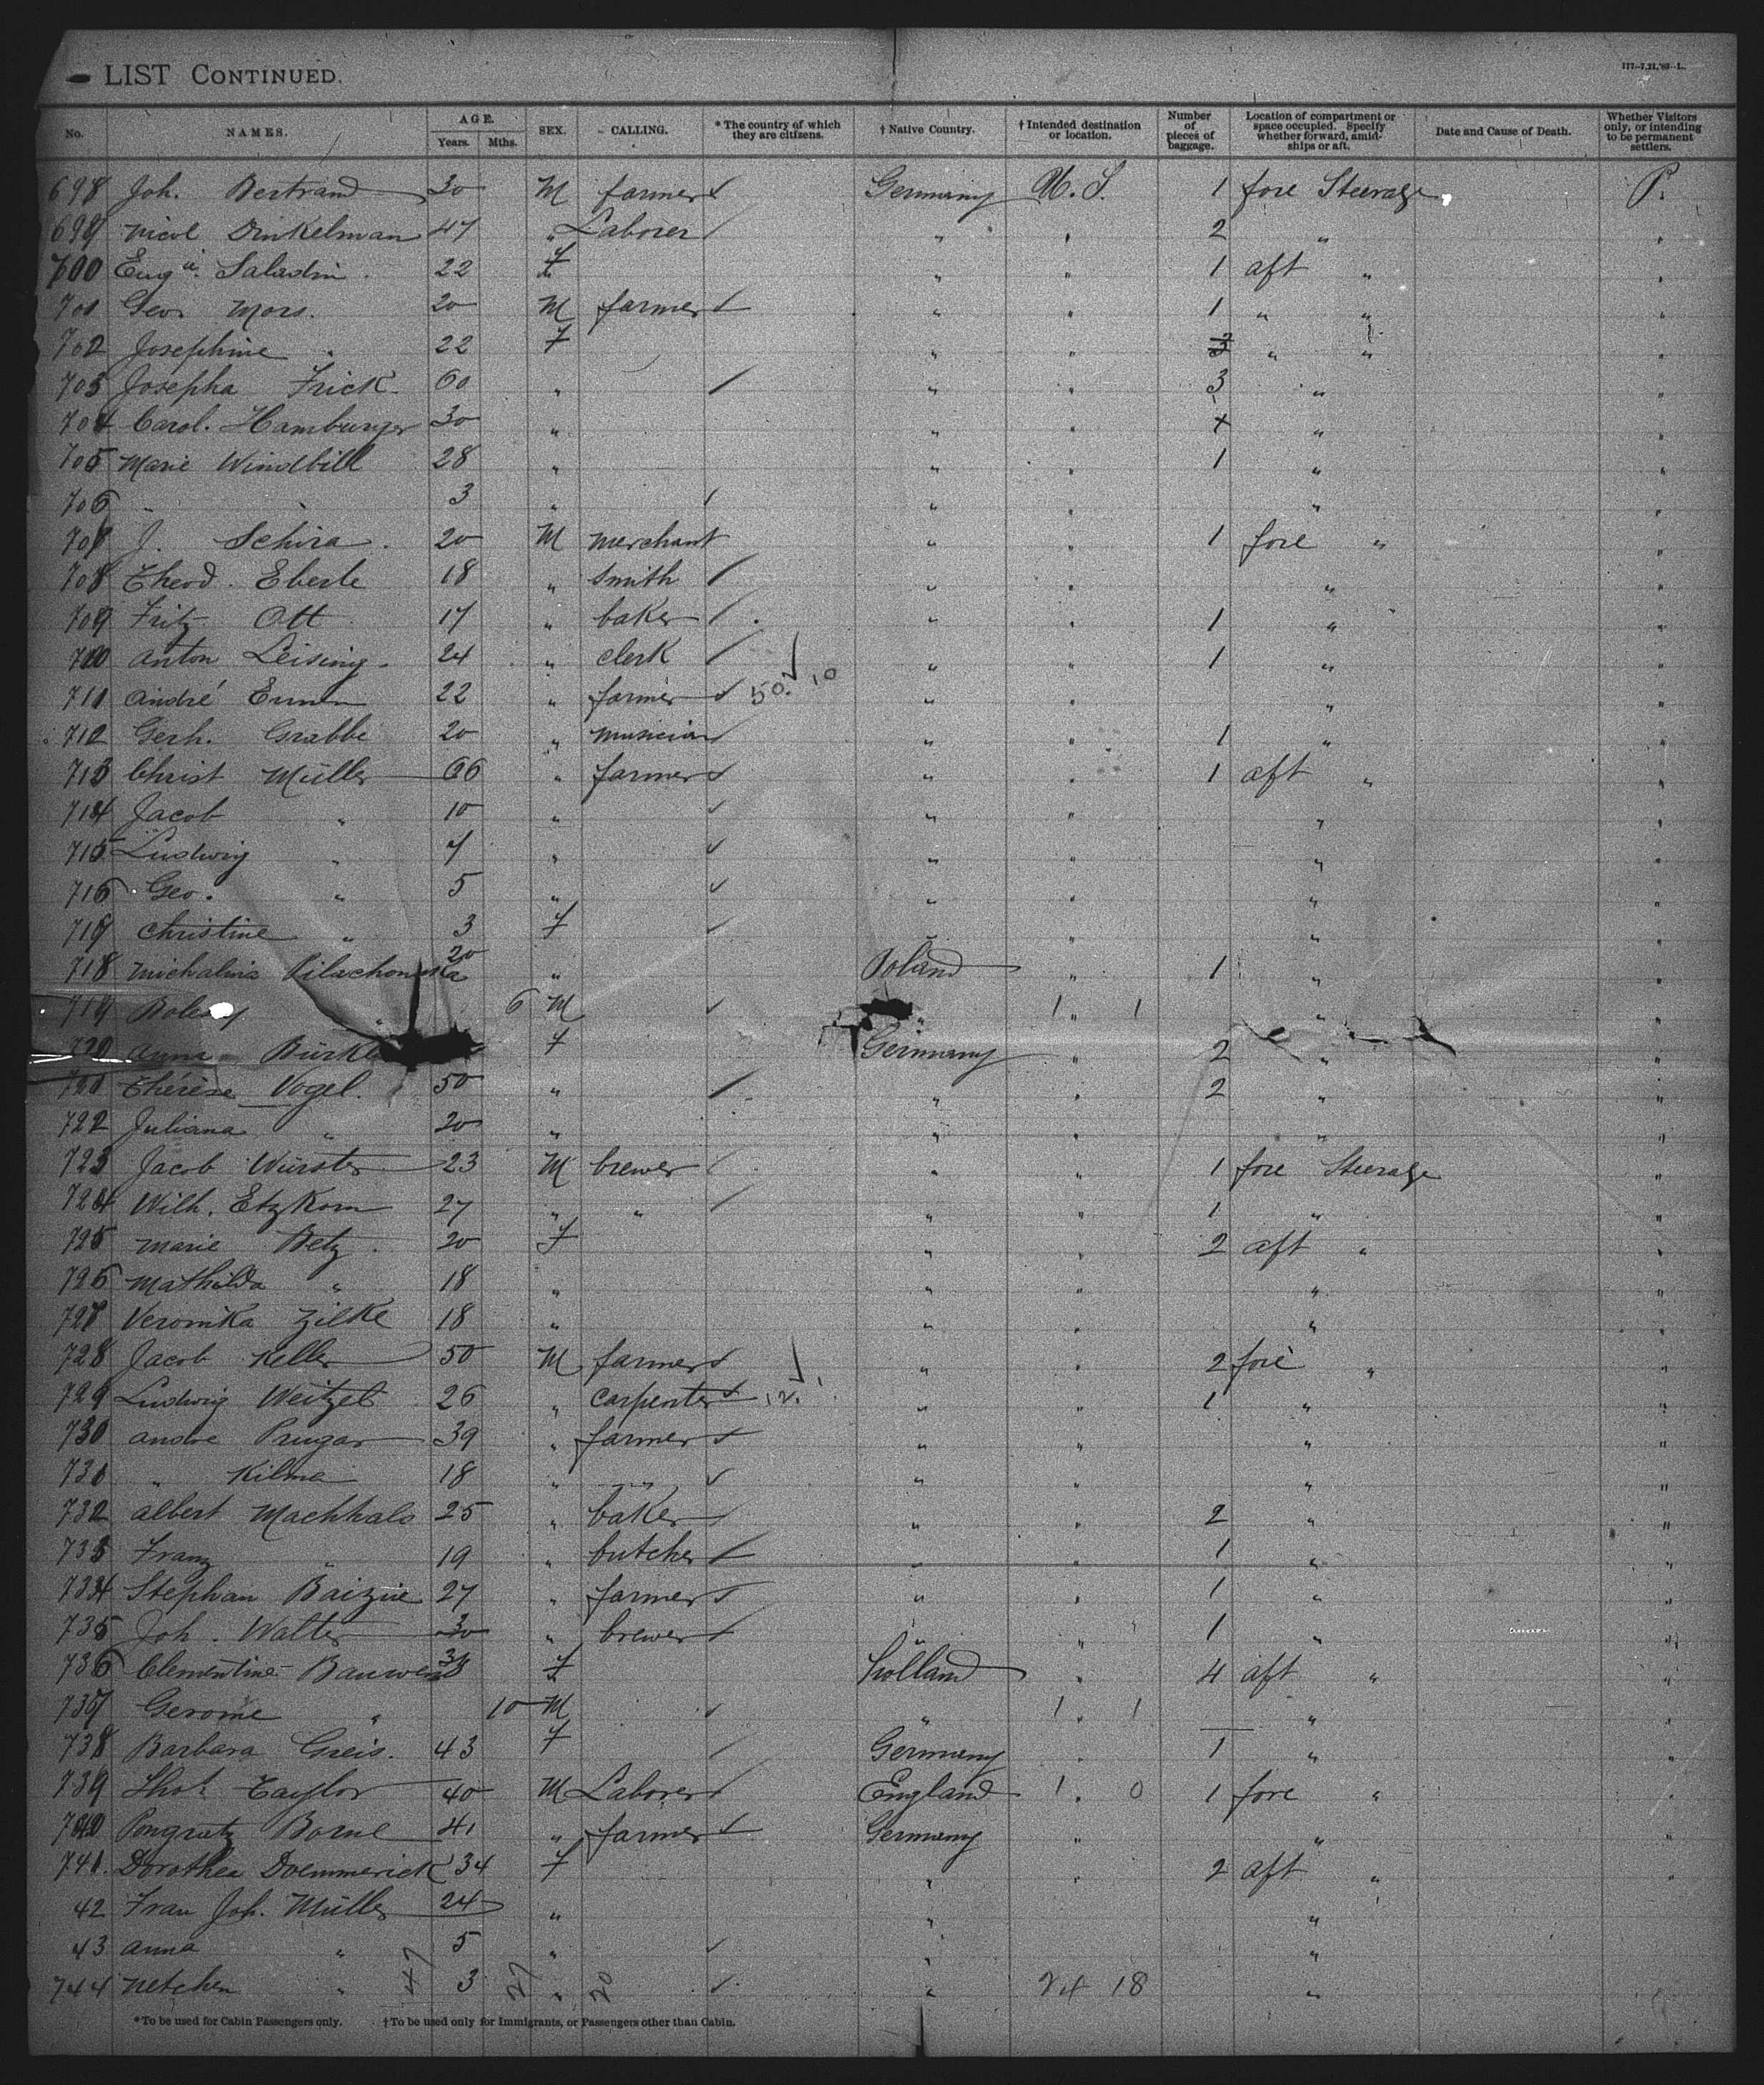 LIST CONTINUED.
177--7,21,'85--1.
No. NAMES. AGE. Years. Mths. SEX. CALLING. *The country of which they are citizens. †Native Country. †Intended destination or location. Number of pieces of baggage. Location of compartment or space occupied. Specify whether forward, amidships or aft. Date and Cause of Death. Whether Visitors only, or intending to be permanent settlers.
698 Joh. Bertrand 30 M farmer Germany U.S. 1 fore Steerage P.
699 Nicol Dinkelman 47 " Laborer " " 2 " "
700 Saladin 22 f " " 1 aft " "
701 Geo. Mors. 20 M farmer " " 1 " " "
702 Josephine " 22 f " " " " "
703 Josepha Frick 60 " " " 3 " "
704 Carol. Hamburger 30 " " " " "
705 Marie Windbill 28 " " " 1 " "
706 " " 3 " " " " "
707 J. Schira 20 M merchant " " 1 fore " "
708 Theod. Eberle 18 " smith " " " "
709 Fritz Ott 17 " baker " " 1 " "
710 Anton Leising 24 " clerk " " 1 " "
711 André 22 " farmer 50. 10 " " "
712 Gerh. Grabbe 20 " musician " " 1 " "
713 Christ Müller 66 " farmer " " 1 aft " "
714 Jacob " 10 " " " " "
715 Ludwig " 7 " " " " "
716 Geo. " 5 " " " " "
717 Christine " 3 f " " " "
718 Michalina 20 " Poland " 1 " "
719 " 6 M " 1 " 1 " "
720 Anna f Germany " 2 " "
721 Thérèse Vogel 50 " " " 2 " "
722 Juliana " 20 " " " " "
723 Jacob Würster 23 M brewer " " 1 fore Steerage "
724 Wilh. Etzkorn 27 " " " " 1 " "
725 Marie Betz 20 f " " 2 aft " "
726 Mathilda " 18 " " " " "
727 Veronika Zilke 18 " " " " "
728 Jacob Keller 50 M farmer " " 2 fore " "
729 Ludwig Weitzel 26 " carpenter " " 1 " "
730 Andre Prugar 39 " farmer " " " "
731 " Kilma 18 " " " " " "
732 Albert Machhals 25 " baker " " 2 " "
733 Franz " 19 " butcher " " 1 " "
734 Stephan 27 " farmer " " 1 " "
735 Joh. Walter 30 " brewer " " 1 " "
736 Clementine Bauwens f Holland " 4 aft " "
737 Gerome " 10 M " 1 " 1 " "
738 Barbara Greis. 43 f Germany " 1 " "
739 Taylor 40 M Laborer England 1 " 0 1 fore " "
740 Pongratz Borne 41 " farmer Germany " " "
741. Dorothea Doemmerick 34 f " " 2 aft " "
42 Frau Joh. Müller 24 " " "
43 Anna " 5 " " "
744 Netchen " 47 3 27 " 20 " 24 18 "
*To be used for Cabin Passengers only. †To be used only for Immigrants, or Passengers other than Cabin.